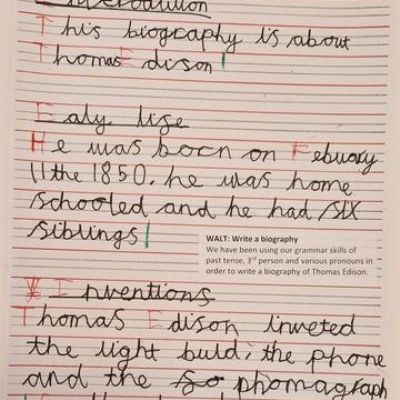 Introduction
This biography is about
Thomas Edison
Ealy life
He was born on Febuary
11the 1850. he was home
schooled and he had six
siblings
WALT: Write a biography
We have been using our grammar skills of
past tense, 3rd person and various pronouns in
order to write a biography of Thomas Edison.
Inventions
Thomas Edison inveted
the light buld, the phone
and the phomagraph